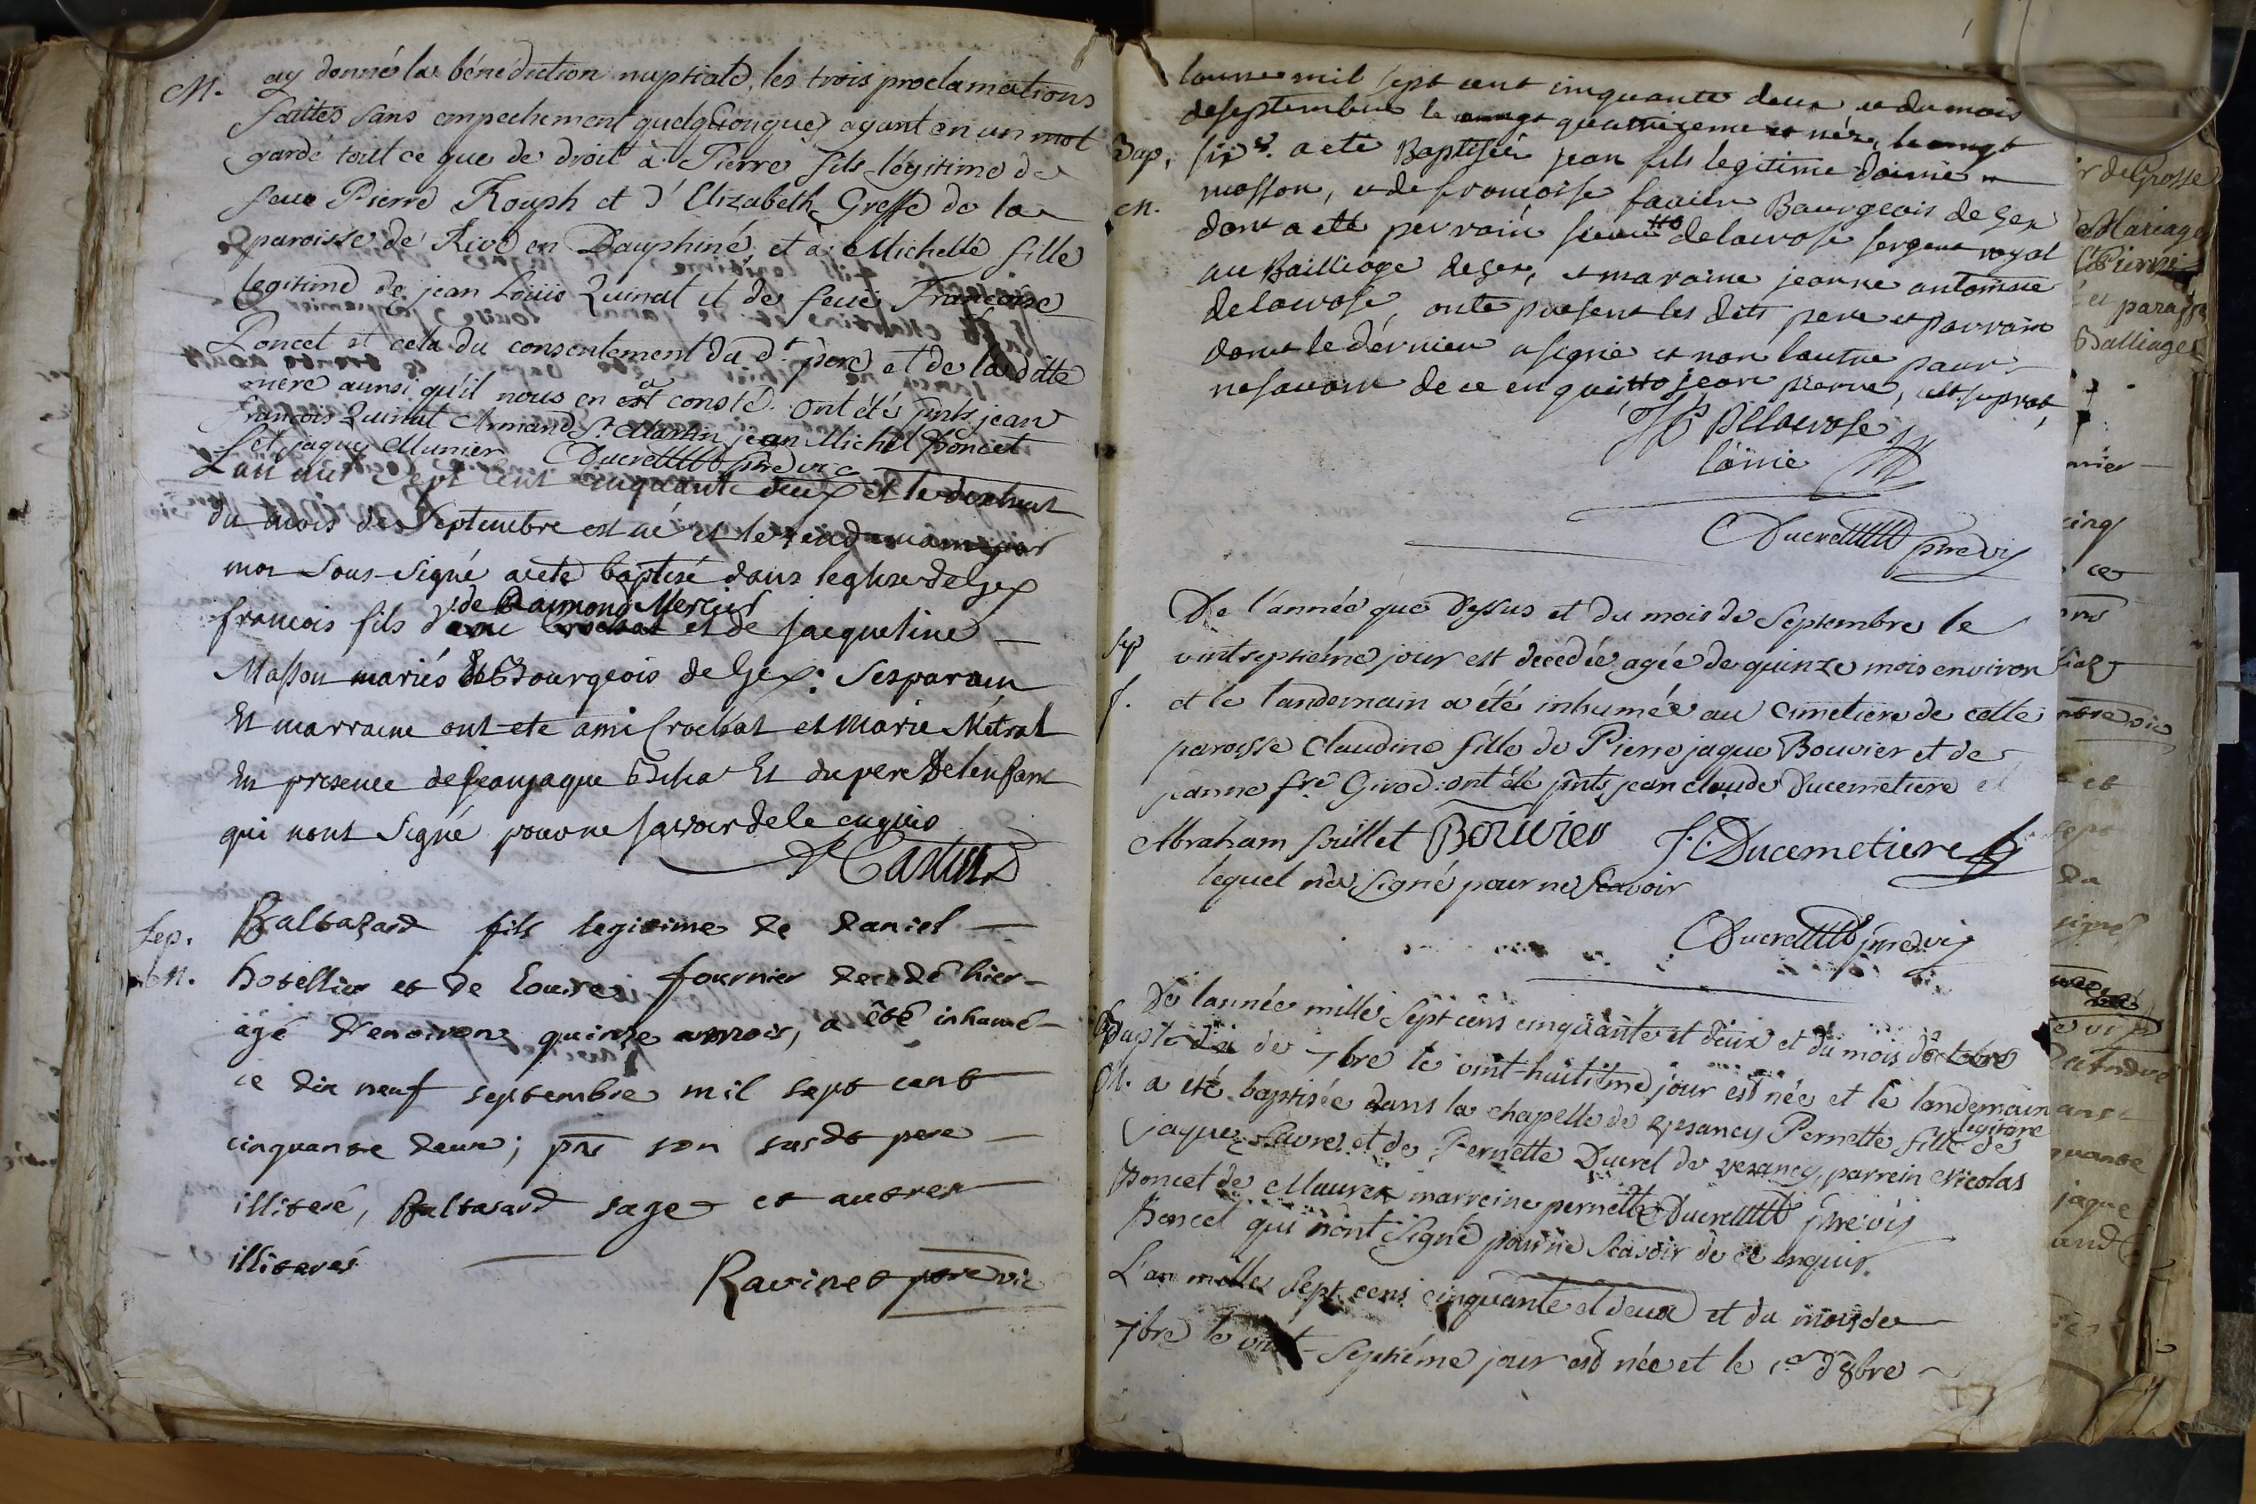 M. ay donné la bénédiction nuptiale, les trois proclamations
faittes sans empechement quelqConques ayant en un mot
gardé tout ce que de droit à Pierre fils légitime de
feu Pierre Rouph et d'Elizabeth Greffe de la
paroisse de Rive en Dauphiné, et à Michelle fille
legitime de jean Louis Quinat et de feüe Françoise
Poncet et cela du consentement du dt. père et de la ditte
mere aunsi qu'il nous en a consté. ont été pnts jean
François Quinat Armand St. Martin jean Michel Poncet
et jaque Munier Ducret ptre vic
L'an mil sept cent cinquante deux et le dixhuit
du mois de Septembre est né et le lendemain par
moi sous-signé aeté baptisé dans leglise de Gex
de Raimond Mercier
francois fils d'ami Crochat et de jacqueline
Masson mariés Bourgeois de Gex. Ses parain
Et marraine ont ete ami Crochat et Marie Métral
En presence de Jeanjaque et du pere de lenfant
qui nont Signé pour ne savoir de ce enquis
Sep. Baltazard fils legitime de daniel
M. hotellier et de Louise fournier decedé hier
âgé d'environ quinze mois, a été inhumé
ce dix neuf septembre mil sept cent
cinquante deux; pns son susdt pere
illiteré, Baltasard sage et autres
illiterés
Ravinet ptre vic
lannee mil sept cent cinquante deux et du mois
de septembre le vingt quatrieme et né le vingt
Bap. six e. a ete Baptisée jean fils legitime daimé
M. masson, et de francoise favier Bourgeois de Gex
dont a ete parrain delacrose sergent royal
au Bailliage de Gex, et maraine jeanne antoinne
delacrose, onte present les dits pere et parrain
dont le dérnier a signé et non lautre pour
ne savoir de ce enquis jean pierre,
JP Delacrose
l'ainé
Ducret ptre vic
De l'année que dessus et du mois de Septembre le
Sep vintseptiéme jour est decedée agée de quinze mois environ
f. et le landemain a été inhumée au cimetiere de cette
paroisse Claudine fille de Pierre jaque Bouvier et de
jeanne fre Girod: ont été pnts jean claude Ducemetiere et
Abraham puillet Bouvier J.C. Ducemetiere
lequel na signé pour ne scavoir
Ducret ptre vic
De lannée mille sept cens cinquante et deux et du mois d'octobre
Bapt. de 7bre le vint-huitième jour est née et le landemain
M. a eté baptisée dans la chapelle de Vesancy Pernette fille legitime de
jaque favre et de Pernette Ducret de vesancy, parrein Nicolas
Poncet de Maurex marreine pernette Ducret ptre vic
Poncet qui n'ont signé pour ne scavoir de ce enquis.
L'an mille sept cens cinquante et deux et du mois de
7bre le vint-septiéme jour est née et le 1er d'8bre